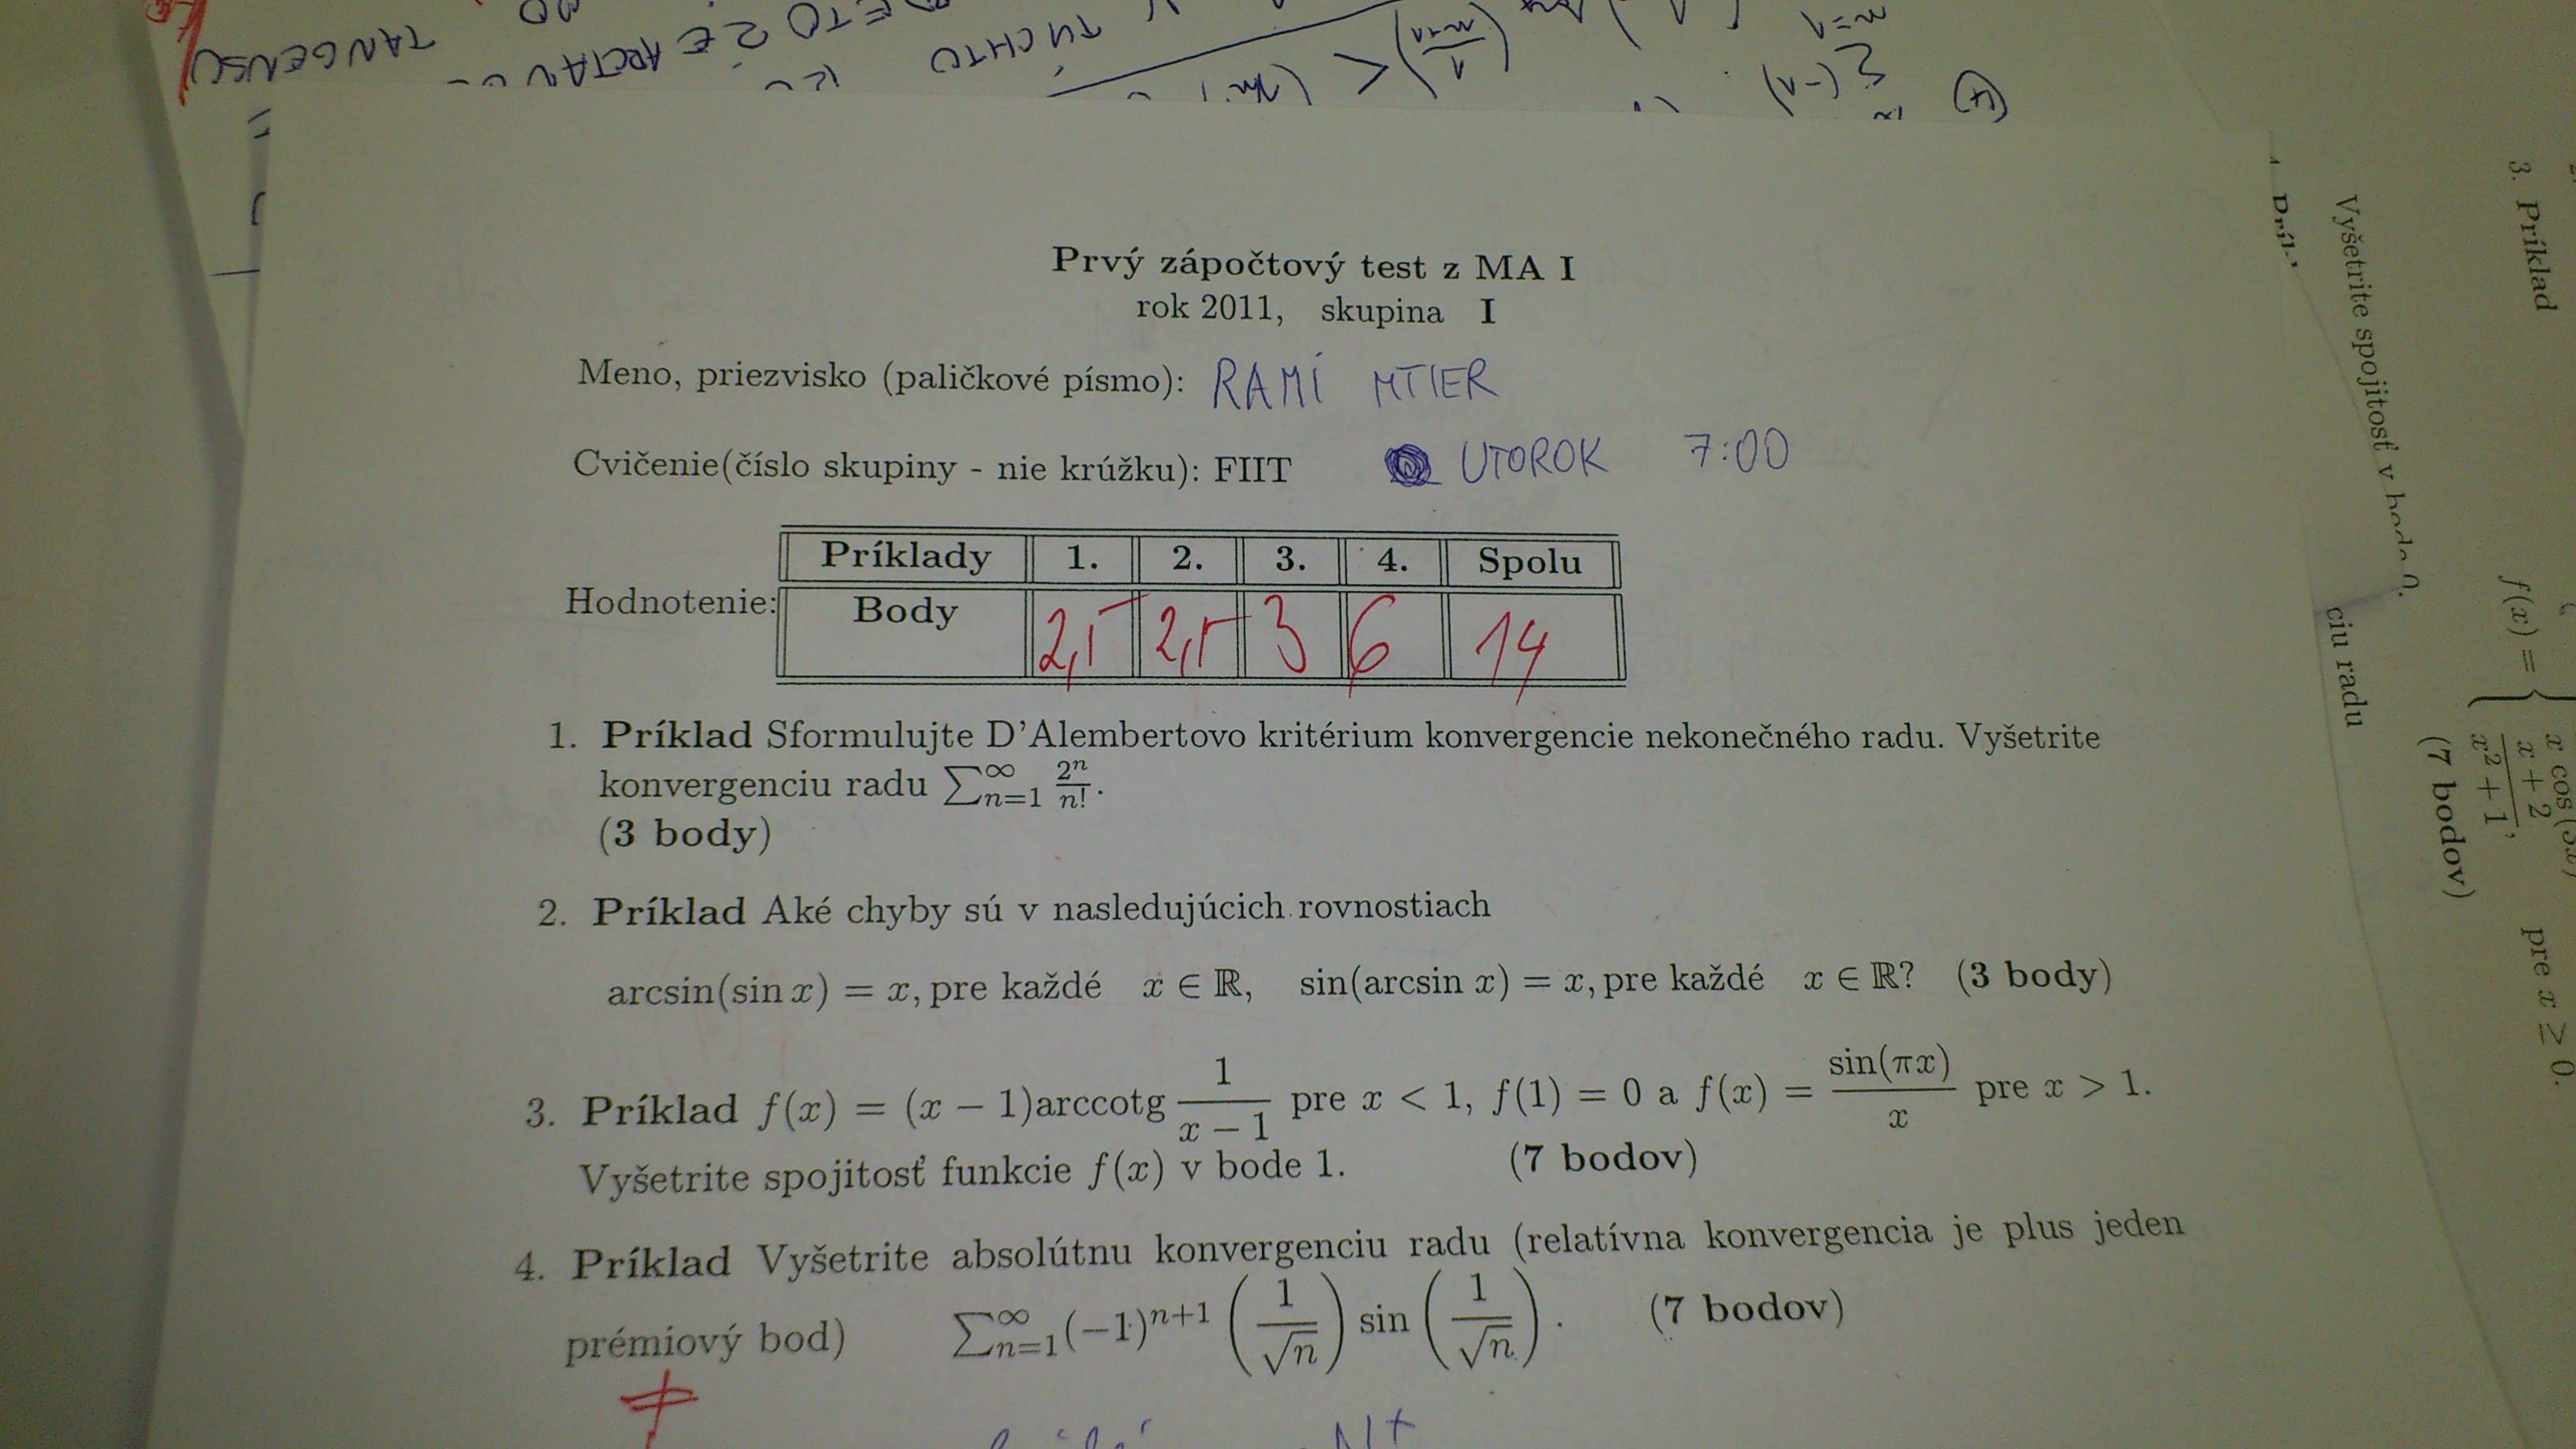 TANGENSU
ARCTAN
ETO 2E
TÝCHTO
Prvý zápočtový test z MA I
rok 2011, skupina I
Meno, priezvisko (paličkové písmo): RAMÍ MTIER
Cvičenie(číslo skupiny - nie krúžku): FIIT UTOROK 7:00
Hodnotenie:
Príklady 1. 2. 3. 4. Spolu
Body 2,5 2,5 3 6 14
1. Príklad Sformulujte D'Alembertovo kritérium konvergencie nekonečného radu. Vyšetrite
konvergenciu radu ∑_{n=1}^{∞} 2^n/n!.
(3 body)
2. Príklad Aké chyby sú v nasledujúcich rovnostiach
arcsin(sin x) = x, pre každé x ∈ ℝ, sin(arcsin x) = x, pre každé x ∈ ℝ? (3 body)
3. Príklad f(x) = (x − 1)arccotg 1/(x − 1) pre x < 1, f(1) = 0 a f(x) = sin(πx)/x pre x > 1.
Vyšetrite spojitosť funkcie f(x) v bode 1. (7 bodov)
4. Príklad Vyšetrite absolútnu konvergenciu radu (relatívna konvergencia je plus jeden
prémiový bod) ∑_{n=1}^{∞}(−1)^{n+1} (1/√n) sin (1/√n). (7 bodov)
3. Príklad
Vyšetrite spojitosť v bode 0.
ciu radu
f(x) = { x cos(
x + 2 / x² + 1, pre x ≥ 0.
(7 bodov)